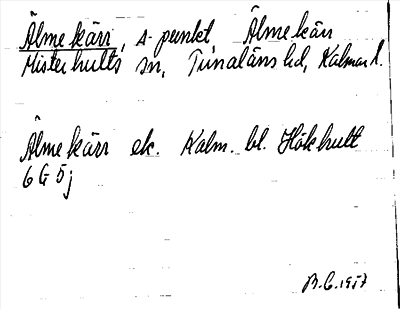 Älmekärr, s-punkt, Älmekärr
Misterhults sn, Tunaläns hd, Kalmar l.
Älmekärr ek. Kalm. bl. Hökhult
6 G 5 j
B.G. 1957